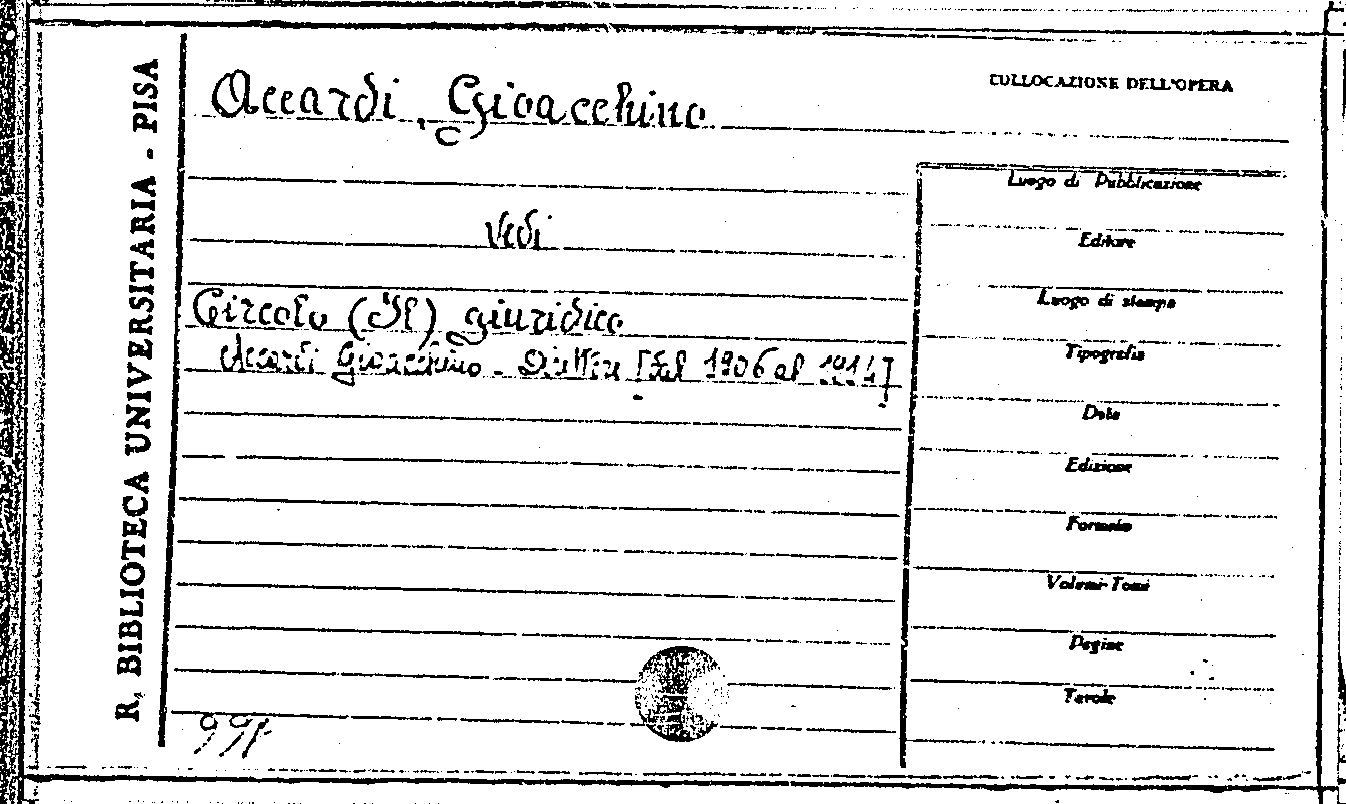 R. BIBLIOTECA UNIVERSITARIA - PISA
Accardi, Gioacchino
vedi
Circolo (Il) giuridico
Accardi Gioacchino - Direttore [dal 1906 al 1914]
COLLOCAZIONE DELL'OPERA
Luogo di Pubblicazione
Editore
Luogo di stampa
Tipografia
Data
Edizione
Formato
Volumi-Tomi
Pagine
Tavole